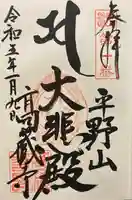 奉拝
平野山
大悲殿
高蔵寺
令和五年一月九日